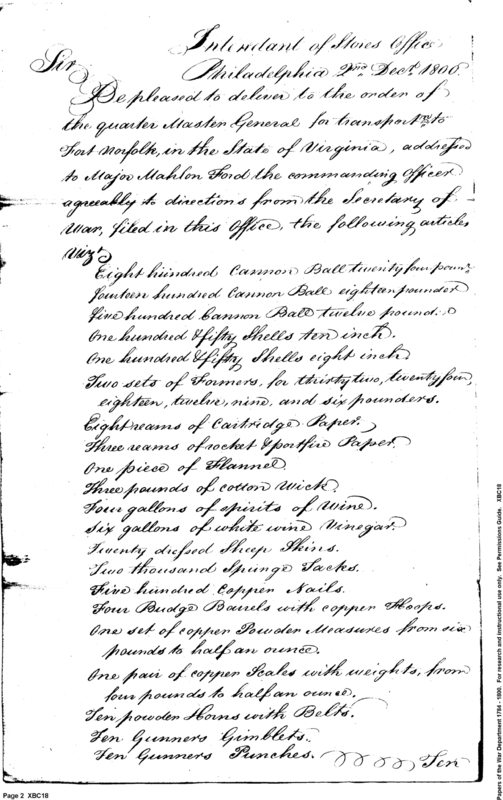 Intendant of Stores Office
Philadelphia 2nd. Decr. 1800.
Sir
Be pleased to deliver to the order of
the quarter Master General for transportn. to
Fort Norfolk, in the State of Virginia, addressed
to Major Mahlon Ford the commanding Officer
agreeably to directions from the Secretary of
War, filed in this Office, the following articles
Vizt.
Eight hundred Cannon Ball twenty four pounr.
fourteen hundred Cannon Ball eighteen pounder
five hundred Cannon Ball twelve pound:
One hundred & fifty Shells ten inch.
One hundred & fifty Shells eight inch
Two sets of Formers, for thirty two, twenty four,
eighteen, twelve, nine, and six pounders.
Eight reams of Cartridge Paper.
Three reams of rocket & portfire Paper.
One piece of Flannel
Three pounds of cotton Wick.
Four gallons of spirits of Wine.
Six gallons of white wine Vinegar.
Twenty dressed Sheep Skins.
Two thousand Spunge Tacks.
Five hundred Copper Nails.
Four Budge Barrels with copper Hoops.
One set of copper Powder Measures from six
pounds to half an ounce.
One pair of copper Scales with weights, from
four pounds to half an ounce.
Ten powder Horns with Belts.
Ten Gunners Gimblets.
Ten Gunners Punches.
Ten
Page 2 XBC18
Papers of the War Department 1784 - 1800. For research and instructional use only. See Permissions Guide. XBC18